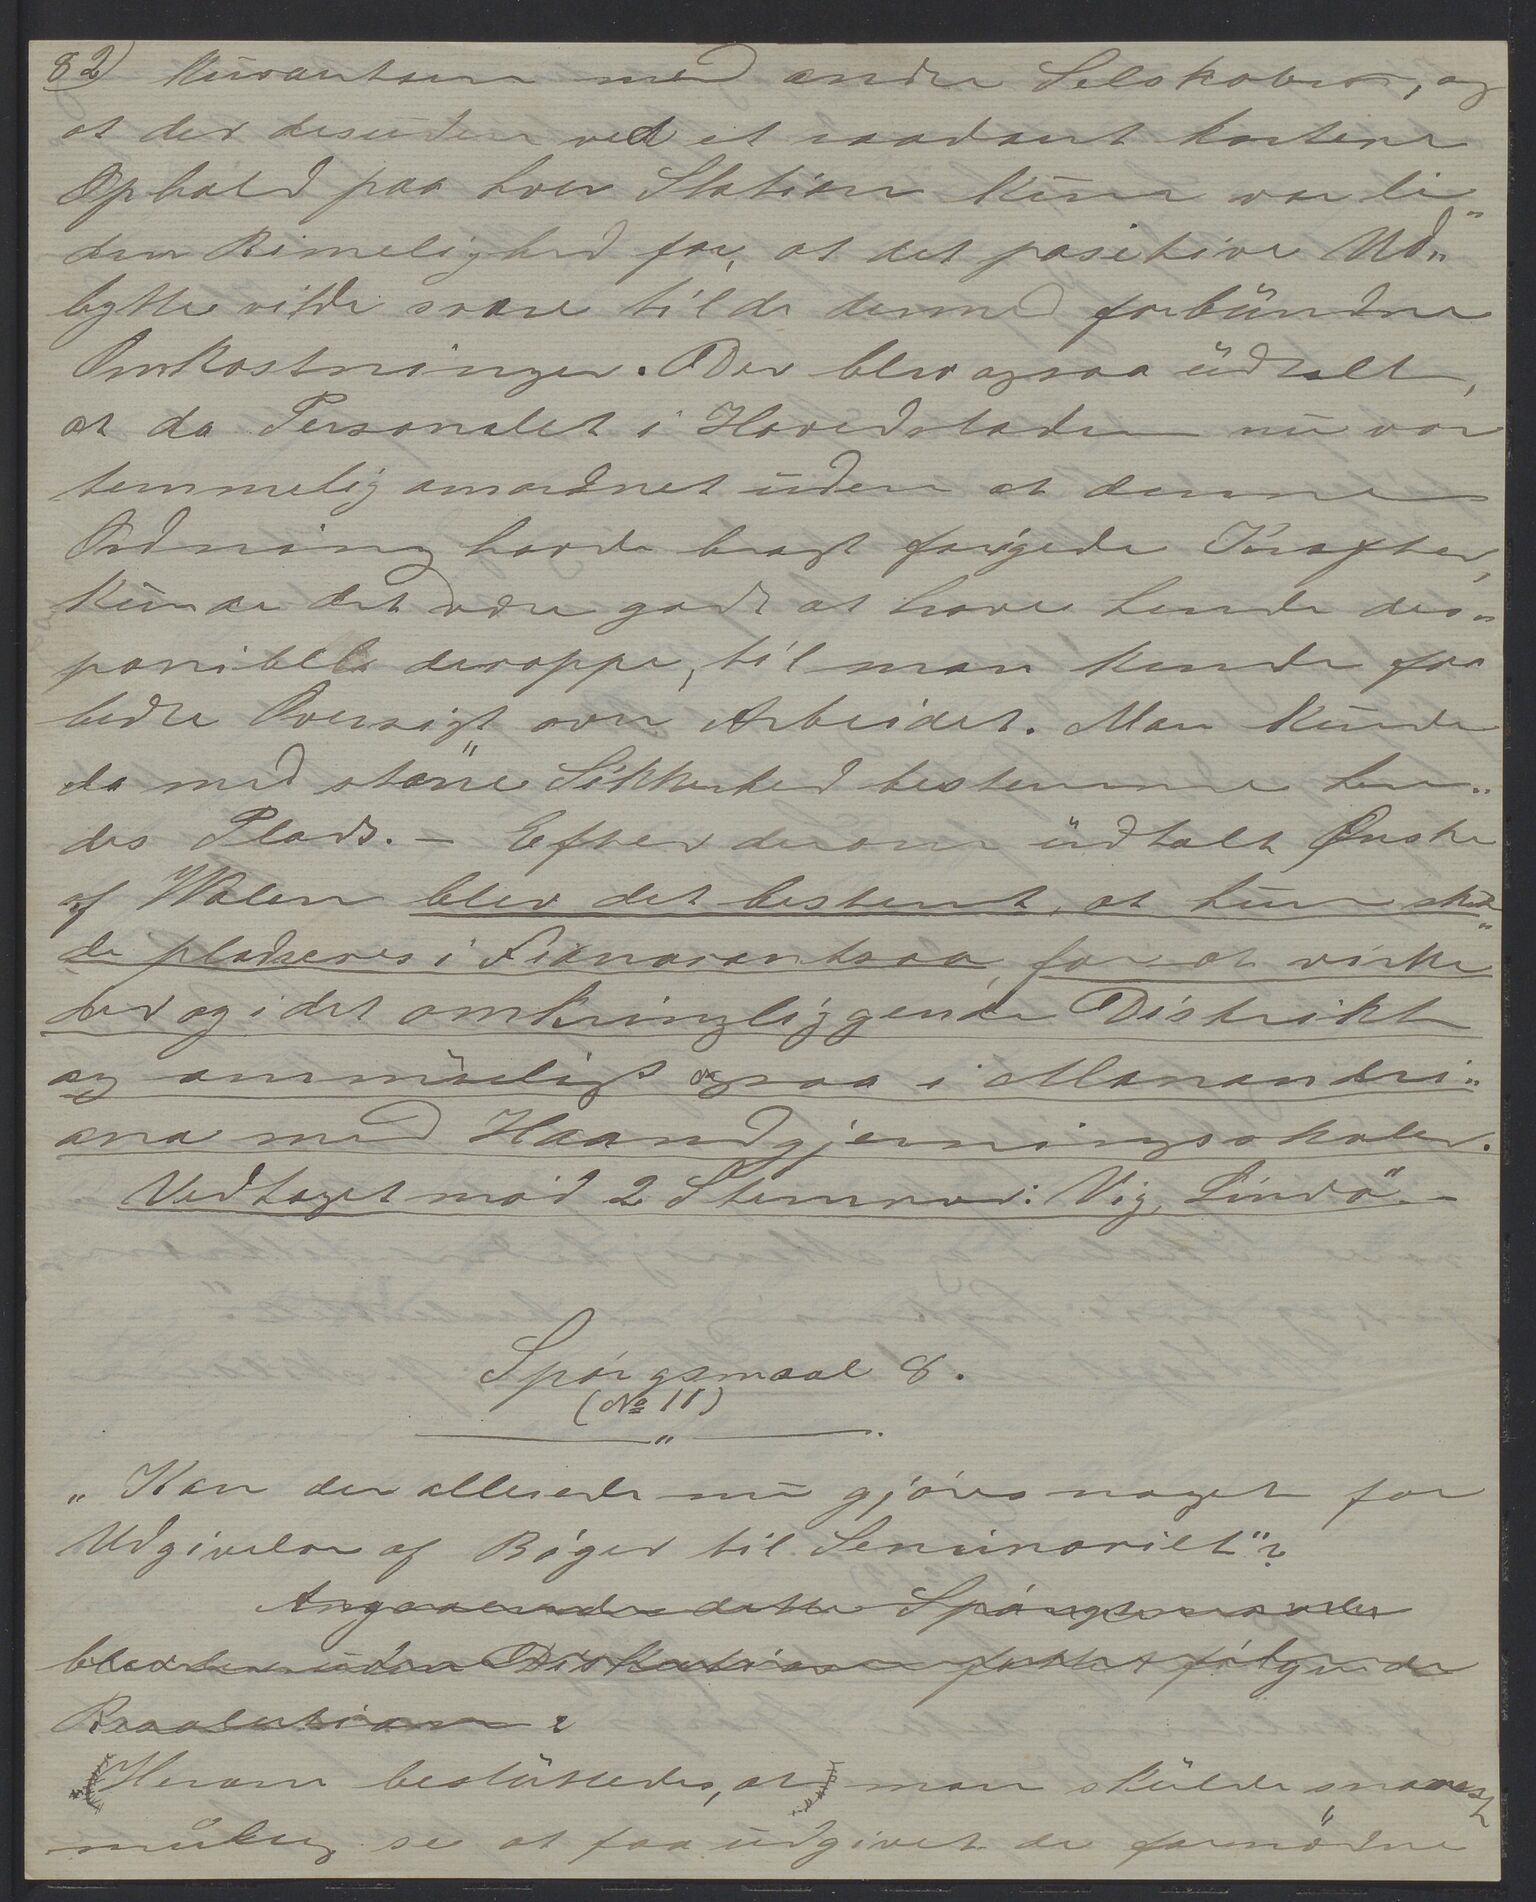 82) Kurantaen med andre Selskaber, og
at der desuden ved et saadant kortere
Ophold paa hver Station kun var li„
den Rimelighed for, at det positive Ud„
bytte vilde svare til de dermed forbundne
Omkostninger. Der blev ogsaa udtalt,
at da Personalet i Hovedstaden nu var
temmelig omordnet uden at denne
Ordning havde bragt forøgede Kræfter,
kunde det være godt at have hende dis„
ponibel deroppe, til man kunde faa
bedre Oversigt over Arbeidet. Man kunde
da med større Sikkerhed bestemme hen„
des Plads. – Efter derom udtalt Ønske
af Walen blev det bestemt, at hun skul„
de pladseres i Fianarantsoa for at virke
der og i det omkringliggende Distrikt
og om muligt ogsaa i Manandri„
ana med Haandgjerningsskoler.
Vedtaget mod 2 Stemmer: Vig, Lindø. –
Spørgsmaal 8.
(№ 11)
„Kan der allerede nu gjøres noget for
Udgivelse af Bøger til Seminariet"?
Angaaende dette Spørgsmaal
blev der uden Diskussion fattet følgende
Resolution:
(Herom besluttedes, at) man skulde snarest
mulig se at faa udgivet de fornødne